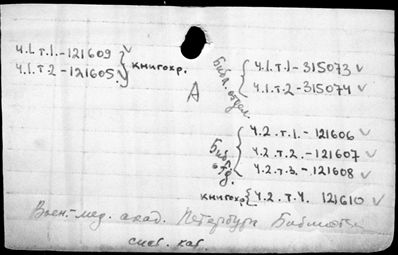 ч.1.т.1.-121609
ч.1.т 2 -121605.
книгохр.
А
Библ. отдел.
ч.1.т.1-315073
ч.1.т.2-315074
Библ. отд.
ч.2.т.1.-121606
ч.2.т.2.-121607
ч.2.т.3.-121608
книгохр.
ч.2.т.4. 121610
Воен.-мед. акад. Петербург Библиотека
каб.